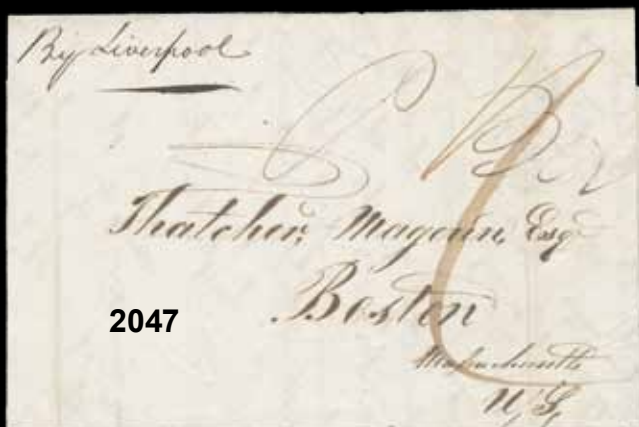 By Liverpool
Thatcher Magoun, Esq
Boston
2047
Massachusetts
U, S,